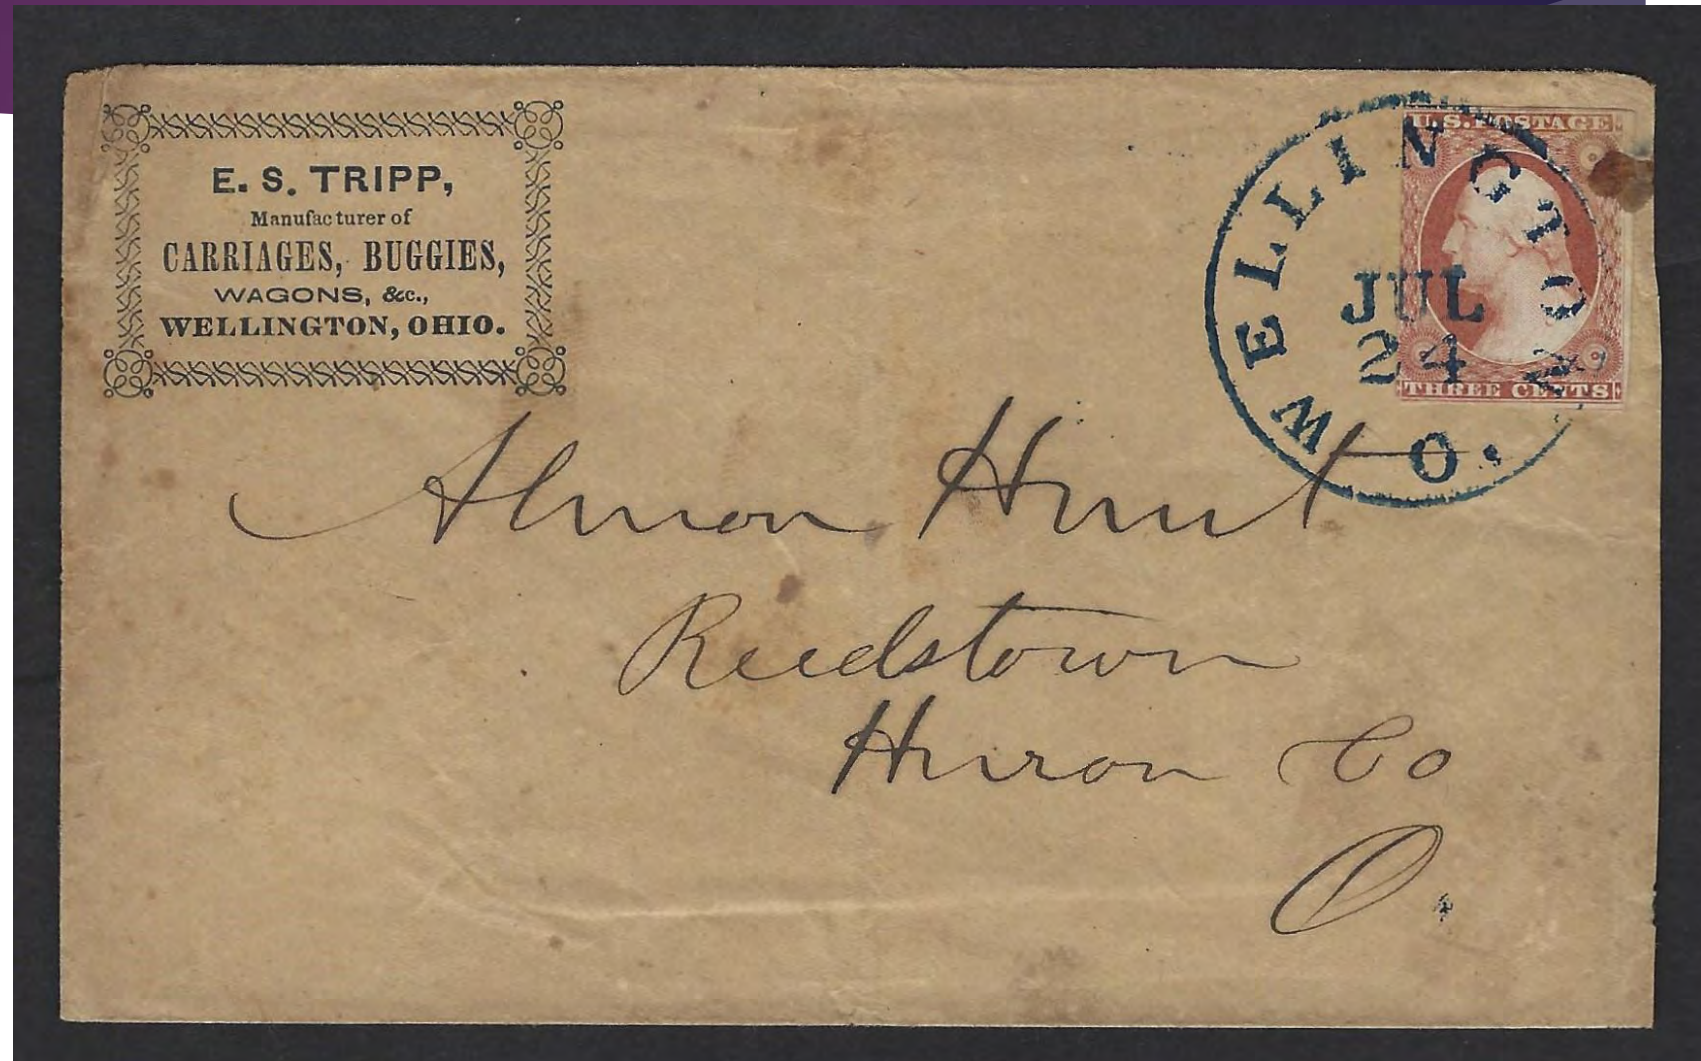 E. S. TRIPP,
Manufacturer of
CARRIAGES, BUGGIES,
WAGONS, &c.,
WELLINGTON, OHIO.
WELLINGTON O.
JUL
24
U.S. POSTAGE
THREE CENTS
Almon Hunt
Reedstown
Huron Co
O.